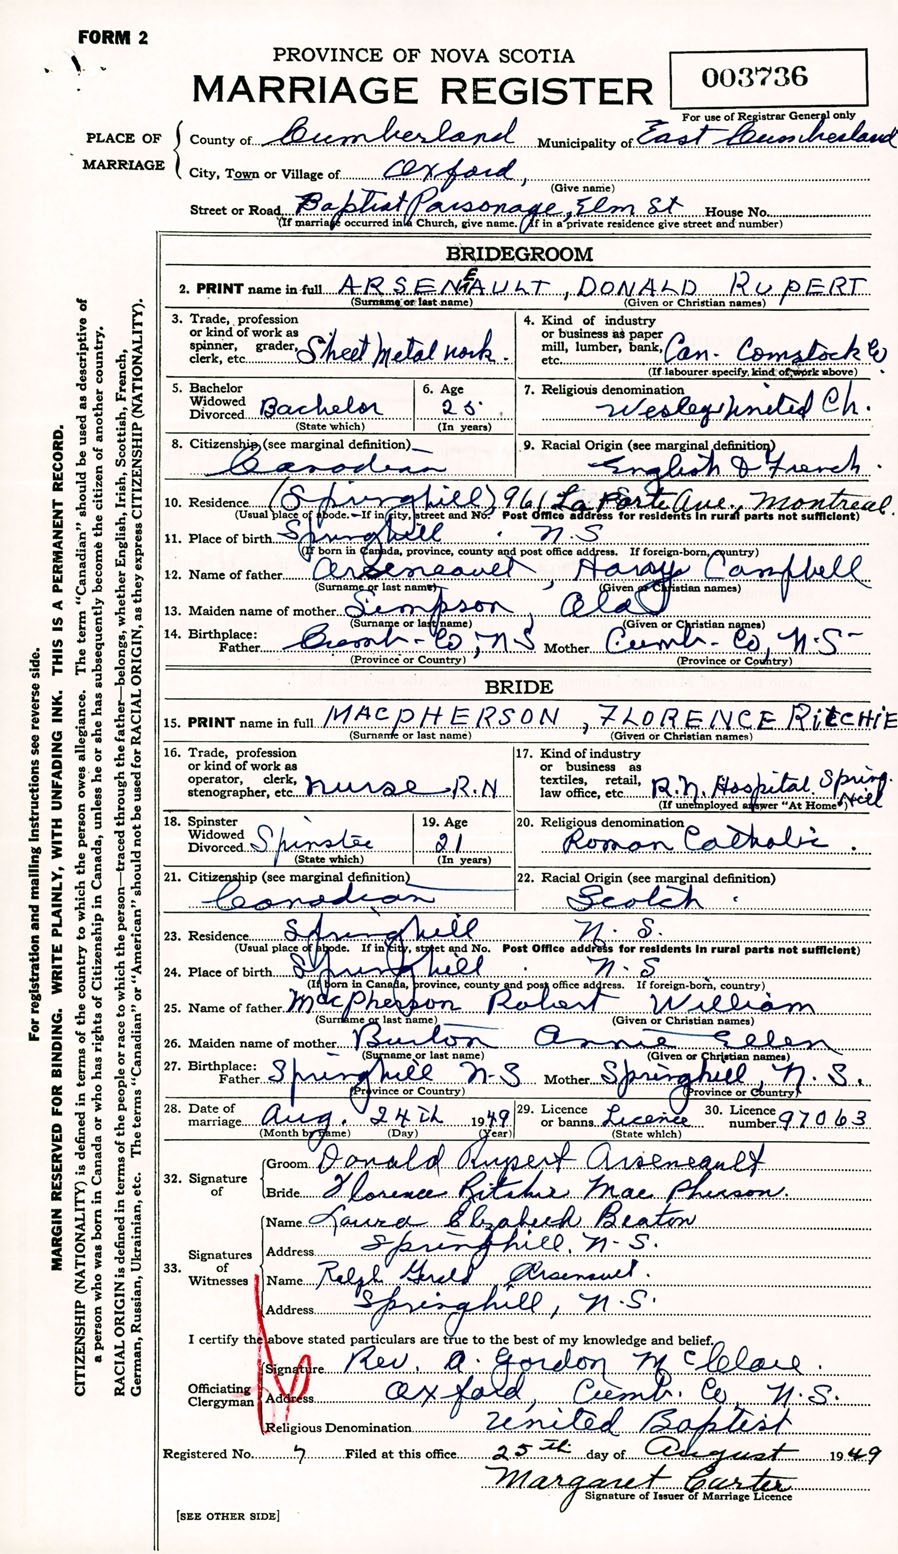 FORM 2
PROVINCE OF NOVA SCOTIA
MARRIAGE REGISTER
003736
For use of Registrar General only
PLACE OF MARRIAGE
County of Cumberland Municipality of East Cumberland
City, Town or Village of Oxford,
(Give name)
Street or Road Baptist Parsonage, Elm St House No.
(If marriage occurred in a Church, give name. If in a private residence give street and number)
BRIDEGROOM
2. PRINT name in full ARSENEAULT, DONALD RUPERT
(Surname or last name) (Given or Christian names)
3. Trade, profession or kind of work as spinner, grader, clerk, etc. Sheet Metal work.
4. Kind of industry or business as paper mill, lumber, bank, etc. Can. Comstock Co
(If labourer specify, kind of work above)
5. Bachelor Widowed Divorced Bachelor
(State which)
6. Age 25
(In years)
7. Religious denomination Wesley United Ch.
8. Citizenship (see marginal definition) Canadian
9. Racial Origin (see marginal definition) English & French.
10. Residence (Springhill) 961 La Porte Ave., Montreal.
(Usual place of abode. If in city, street and No. Post Office address for residents in rural parts not sufficient)
11. Place of birth Springhill N.S
(If born in Canada, province, county and post office address. If foreign-born, country)
12. Name of father Arseneault, Harry Campbell
(Surname or last name) (Given or Christian names)
13. Maiden name of mother Simpson, Ola
(Surname or last name) (Given or Christian names)
14. Birthplace: Father Cumb- Co, NS Mother Cumb- Co, N.S-
(Province or Country) (Province or Country)
BRIDE
15. PRINT name in full MACPHERSON, FLORENCE RITCHIE
(Surname or last name) (Given or Christian names)
16. Trade, profession or kind of work as operator, clerk, stenographer, etc. nurse R.N
17. Kind of industry or business as textiles, retail, law office, etc. R.N. Hospital Spring Hill
(If unemployed answer "At Home")
18. Spinster Widowed Divorced Spinster
(State which)
19. Age 21
(In years)
20. Religious denomination Roman Catholic.
21. Citizenship (see marginal definition) Canadian
22. Racial Origin (see marginal definition) Scotch.
23. Residence Springhill N. S.
(Usual place of abode. If in city, street and No. Post Office address for residents in rural parts not sufficient)
24. Place of birth Springhill N.S
(If born in Canada, province, county and post office address. If foreign-born, country)
25. Name of father MacPherson Robert William
(Surname or last name) (Given or Christian names)
26. Maiden name of mother Burton Annie Ellen
(Surname or last name) (Given or Christian names)
27. Birthplace: Father Springhill N-S Mother Springhill, N.S.
(Province or Country) (Province or Country)
28. Date of marriage Aug. 24th 1949
(Month by name) (Day) (Year)
29. Licence or banns Licence
(State which)
30. Licence number 97063
32. Signature of
Groom Donald Rupert Arseneault
Bride Florence Ritchie MacPherson.
33. Signatures of Witnesses
Name Laura Elizabeth Beaton
Address Springhill, N-S.
Name Ralph Gerald Arseneault.
Address Springhill, N.S.
I certify the above stated particulars are true to the best of my knowledge and belief.
Officiating Clergyman
Signature Rev. A. Gordon McClare.
Address Oxford, Cumb. Co, N.S.
Religious Denomination United Baptist
Registered No. 7 Filed at this office 25th day of August 1949
Margaret Carter
Signature of Issuer of Marriage Licence
[SEE OTHER SIDE]
For registration and mailing instructions see reverse side.
MARGIN RESERVED FOR BINDING. WRITE PLAINLY, WITH UNFADING INK. THIS IS A PERMANENT RECORD.
CITIZENSHIP (NATIONALITY) is defined in terms of the country to which the person owes allegiance. The term "Canadian" should be used as descriptive of
a person who was born in Canada or who has rights of Citizenship in Canada, unless he or she has subsequently become the citizen of another country.
RACIAL ORIGIN is defined in terms of the people or race to which the person—traced through the father—belongs, whether English, Irish, Scottish, French,
German, Russian, Ukrainian, etc. The terms "Canadian" or "American" should not be used for RACIAL ORIGIN, as they express CITIZENSHIP (NATIONALITY).